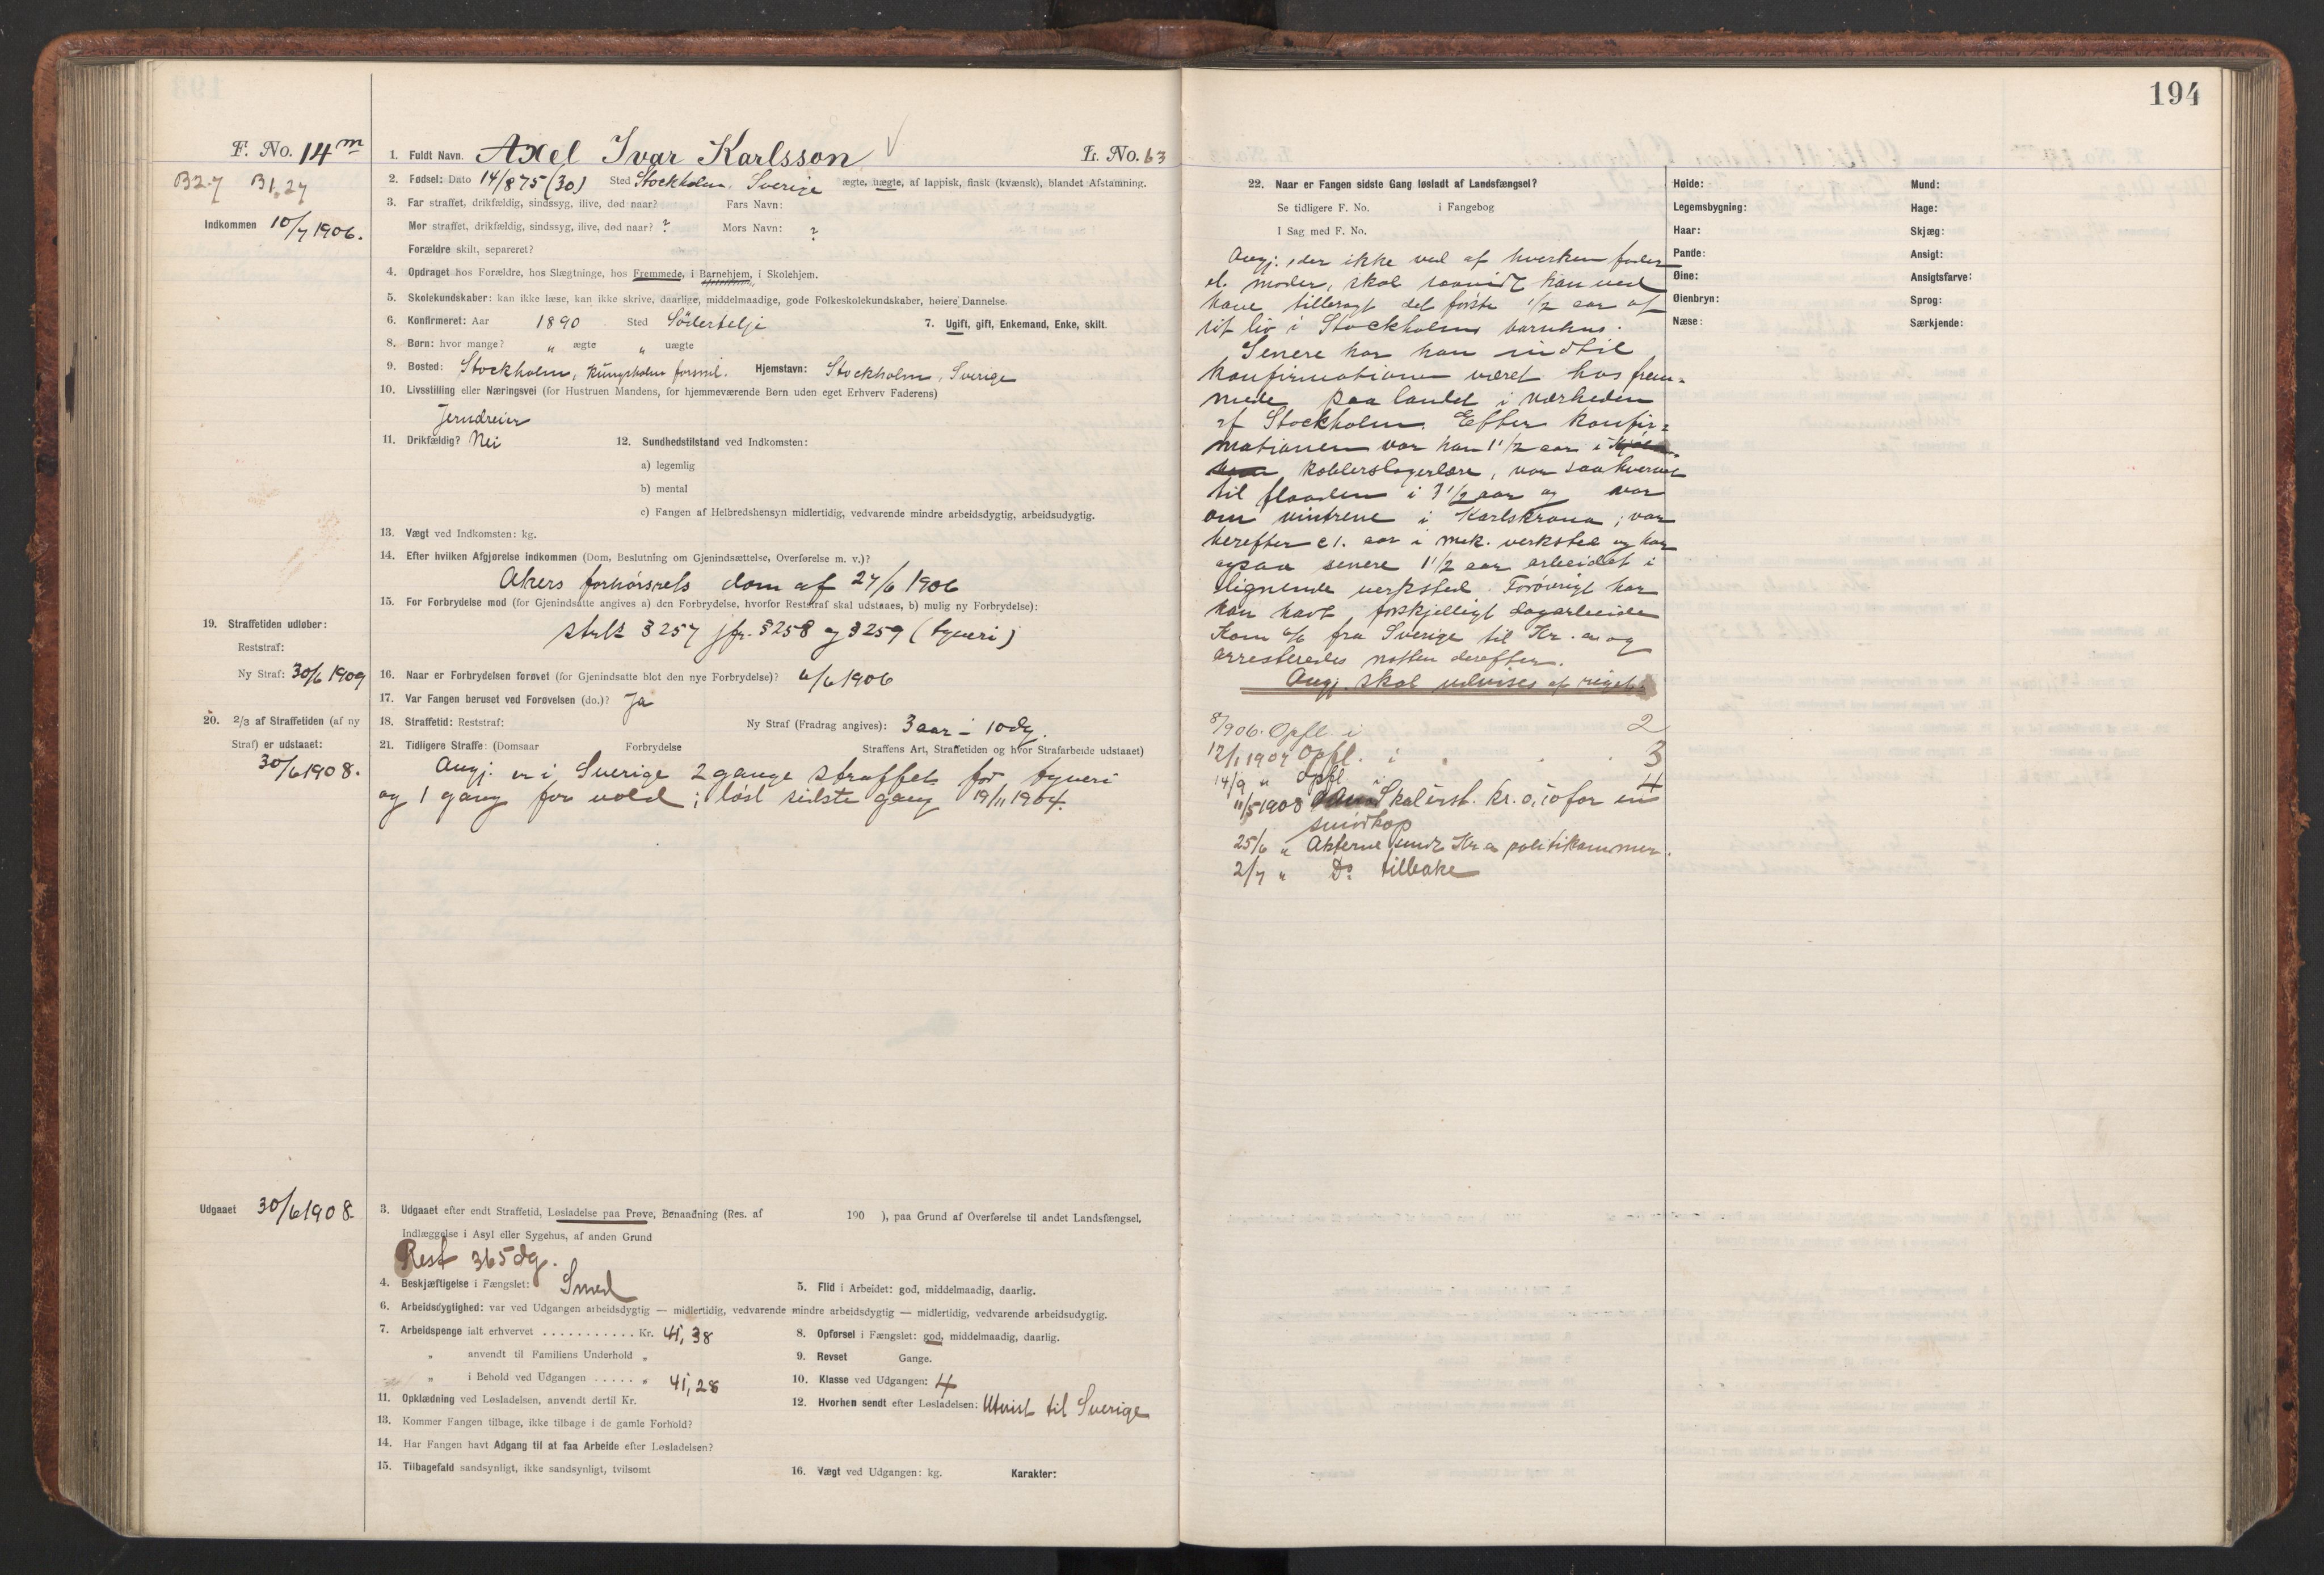 194
F. No. 14 m
B2.7 B1,27
Indkommen 10/7 1906.
1. Fuldt Navn. Axel Ivar Karlsson L. No. 63
2. Fødsel: Dato 14/8 75 (30) Sted Stockholm, Sverige ægte, uægte, af lappisk, finsk (kvænsk), blandet Afstamning.
3. Far straffet, drikfældig, sindssyg, ilive, død naar? Fars Navn:
Mor straffet, drikfældig, sindssyg, ilive, død naar? ? Mors Navn: ?
Forældre skilt, separeret?
4. Opdraget hos Forældre, hos Slægtninge, hos Fremmede, i Barnehjem, i Skolehjem.
5. Skolekundskaber: kan ikke læse, kan ikke skrive, daarlige, middelmaadige, gode Folkeskolekundskaber, høiere Dannelse.
6. Konfirmeret: Aar 1890 Sted Södertelje 7. Ugift, gift, Enkemand, Enke, skilt.
8. Børn: hvor mange? " ægte " uægte
9. Bosted: Stockholm, Kungsholm forsml. Hjemstavn: Stockholm, Sverige
10. Livsstilling eller Næringsvei (for Hustruen Mandens, for hjemmeværende Børn uden eget Erhverv Faderens)
Jerndreier
11. Drikfældig? Nei 12. Sundhedstilstand ved Indkomsten:
a) legemlig
b) mental
c) Fangen af Helbredshensyn midlertidig, vedvarende mindre arbeidsdygtig, arbeidsudygtig.
13. Vægt ved Indkomsten: kg.
14. Efter hvilken Afgjørelse indkommen (Dom, Beslutning om Gjenindsættelse, Overførelse m. v.)?
Akers forhörsrets dom af 27/6 1906
15. For Forbrydelse mod (for Gjenindsatte angives a) den Forbrydelse, hvorfor Reststraf skal udstaaes, b) mulig ny Forbrydelse):
strl § 257 jfr. § 258 og § 259 (tyveri)
19. Straffetiden udløber:
Reststraf:
Ny Straf: 30/6 1909
16. Naar er Forbrydelsen forøvet (for Gjenindsatte blot den nye Forbrydelse)? 6/6 1906
17. Var Fangen beruset ved Forøvelsen (do.)? Ja
20. 2/3 af Straffetiden (af ny
Straf) er udstaaet:
30/6 1908.
18. Straffetid: Reststraf: Ny Straf (Fradrag angives): 3 aar – 10 dg.
21. Tidligere Straffe: (Domsaar Forbrydelse Straffens Art, Straffetiden og hvor Strafarbeide udstaaet)
Angj. er i Sverige 2 gange straffet for tyveri
og 1 gang for vold; løsl sidste gang 19/11 1904.
Udgaaet 30/6 1908.
3. Udgaaet efter endt Straffetid, Løsladelse paa Prøve, Benaadning (Res. af 190 ), paa Grund af Overførelse til andet Landsfængsel,
Indlæggelse i Asyl eller Sygehus, af anden Grund
Rest 365 dg.
4. Beskjæftigelse i Fængslet: Smed 5. Flid i Arbeidet: god, middelmaadig, daarlig.
6. Arbeidsdygtighed: var ved Udgangen arbeidsdygtig — midlertidig, vedvarende mindre arbeidsdygtig — midlertidig, vedvarende arbeidsudygtig.
7. Arbeidspenge ialt erhvervet . . . . . . . . . . . Kr. 41,38 8. Opførsel i Fængslet: god, middelmaadig, daarlig.
" anvendt til Familiens Underhold " 9. Revset Gange.
" i Behold ved Udgangen . . . . . " 41,28 10. Klasse ved Udgangen: 4
11. Opklædning ved Løsladelsen, anvendt dertil Kr. 12. Hvorhen sendt efter Løsladelsen: Utvist til Sverige
13. Kommer Fangen tilbage, ikke tilbage i de gamle Forhold?
14. Har Fangen havt Adgang til at faa Arbeide efter Løsladelsen?
15. Tilbagefald sandsynligt, ikke sandsynligt, tvilsomt 16. Vægt ved Udgangen: kg. Karakter:
22. Naar er Fangen sidste Gang løsladt af Landsfængsel?
Se tidligere F. No. i Fangebog
I Sag med F. No.
Angj., der ikke ved af hverken fader
el. moder, skal saavidt han ved
have tilbragt det første 1/2 aar af
sit liv i Stockholms barnhus.
Senere har han indtil
konfirmationen været hos frem-
mede paa landet i nærheden
af Stockholm. Efter konfir-
mationen var han 1 1/2 aar i
kobberslagerlære, var saa hvervet
til flaaden i 3 1/2 aar og var
om vintrene i Karlskrona; var
derefter c 1. aar i mek. verksted og har
ogsaa senere 1 1/2 aar arbeidet i
lignende verksted. Forøvrigt har
han havt forskjelligt dagarbeide
Kom 6/6 fra Sverige til Kr.a og
arresteredes natten derefter.
Angj. skal udvises af riget.
8/906. Opfl. i 2
12/1 1907 Opfl. i 3
14/9 " Opfl i 4
11/5 1908 Skal erst. Kr. 0,10 for en
smørkop
25/6 " Akterne sendt Kr.a politikammer.
2/7 " Do tilbake
Høide: Mund:
Legemsbygning: Hage:
Haar: Skjæg:
Pande: Ansigt:
Øine: Ansigtsfarve:
Øienbryn: Sprog:
Næse: Særkjende: